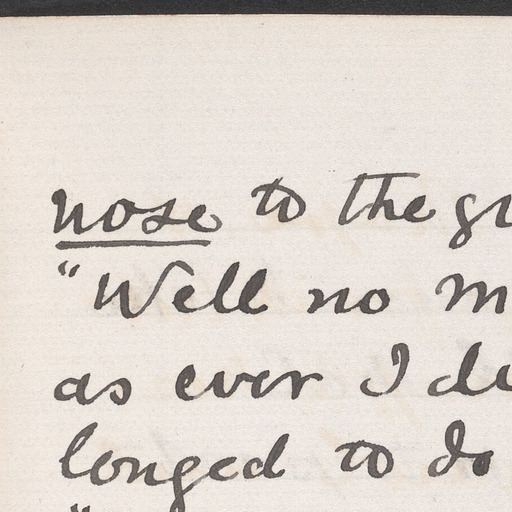 nose to the gr
"Well no m
as ever I de
longed to do
"